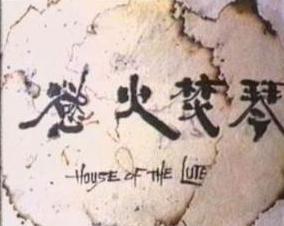 慾火焚琴
HOUSE OF THE LUTE